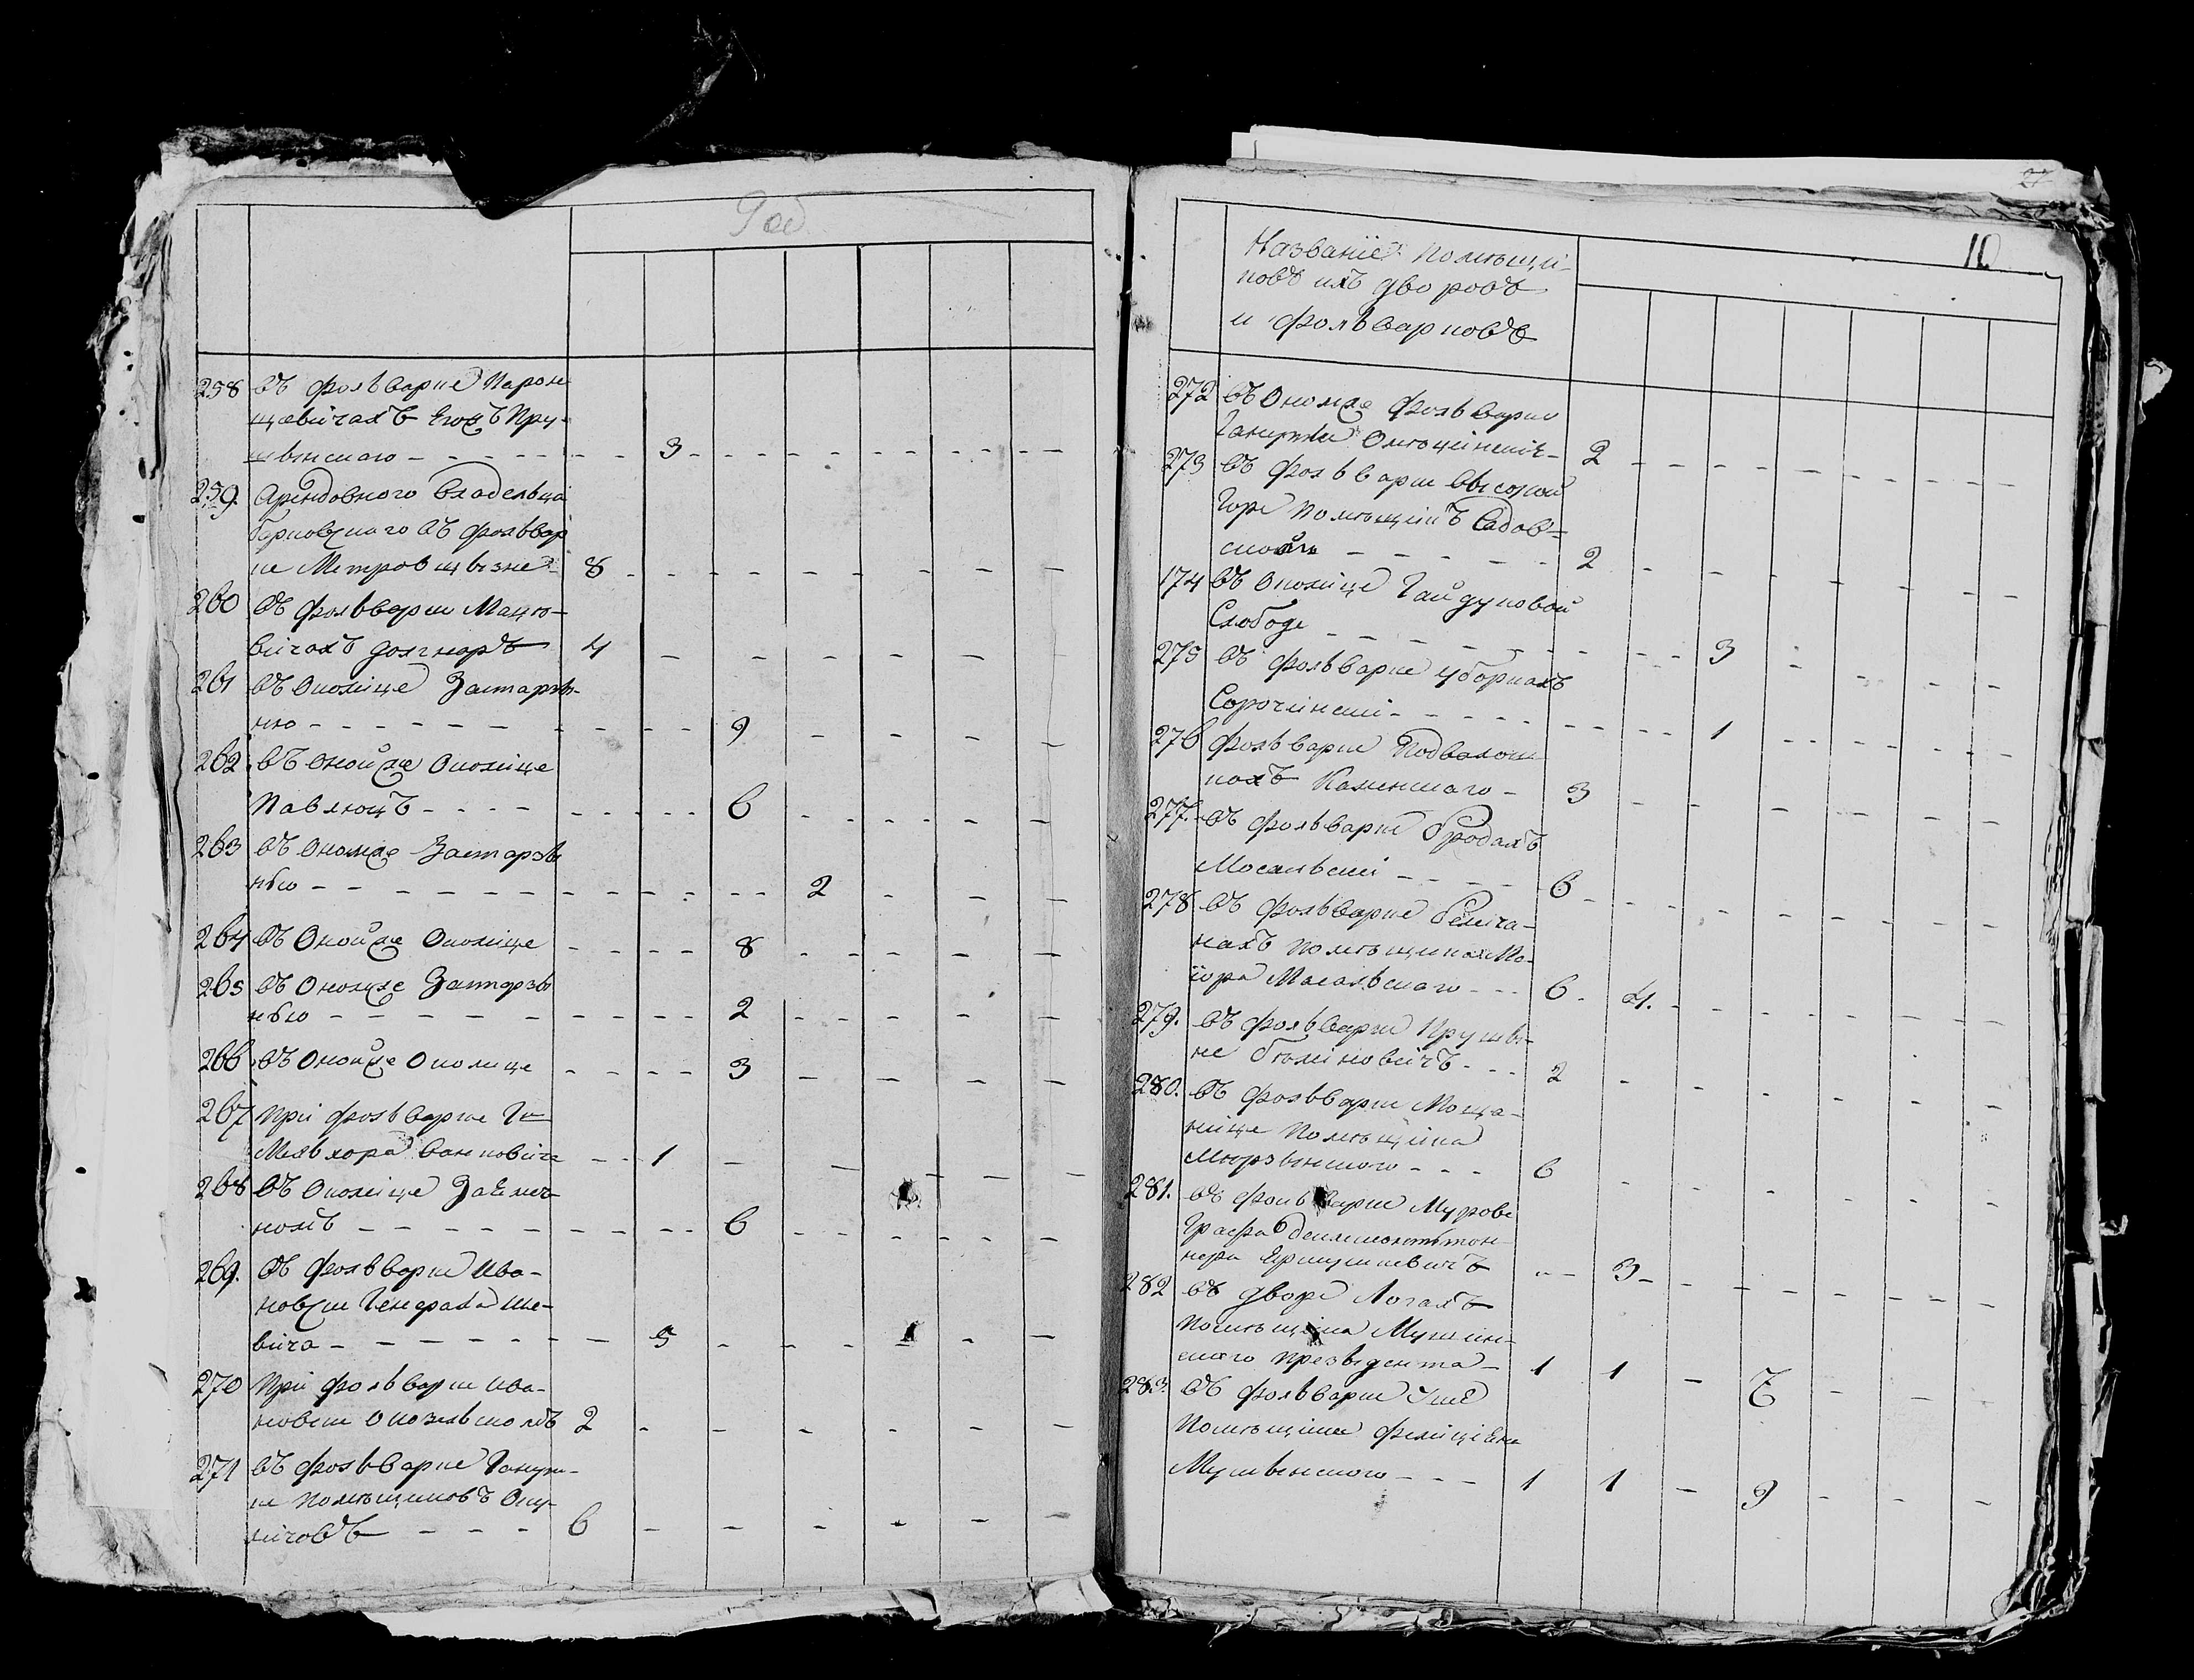 Род
258 Въ фольварке Парон
щевичахъ Ениохъ Пру-
швинскаго - - - - - 3 - - - - -
259. Арендовного Владельца
въ фольвар
ке Метровщизне - 8 - - - - - -
260 Въ фольварки Мацю-
вичахъ 4 - - - - - -
261 Въ Околице Застарзы-
нью - - - - - - 9 - - - -
262 Въ Оной же Околице
Павлюцъ - - - - 6 - - - -
263 Въ Оном же Застарзы
нью - - - - - - 2 - - -
264 Въ Оной же Околице - - 8 - - - -
265 Въ Оном же Застарзы
нью - - - - - - 2 - - - -
266 Въ Оной же Околице - - 3 - - - -
267 При фольварке Гн
Мельхора Ваньковича - 1 - - - - -
268 Въ Околице Заямеч-
номъ - - - - - - 6 - - - -
269. Въ фольварки Ива-
новски Генерала Ине-
вича - - - - - - 5 - - - - -
270 При фольварки Ива-
новски 2 - - - - - -
271 Въ фольварке Ганут-
ке Помещиковъ Оку-
личовъ - - - 6 - - - - - -
27
10
Названіе Помещи-
ковъ ихъ дворовъ
и фольварковъ
272 Въ Оном же фольварки
Ганутки - 2 - - - - - -
273 Въ фольварки Высокой
Горе Помещикъ Садов-
ской - - - - 2 - - - - - -
174 Въ Околице Гайдуковой
Слободе - - - - - 3 - - - -
275 Въ фольварке Уборкахъ
Сорочински - - - - - 1 - - - -
276 фольварки Подволош-
кахъ Каминскаго - 3 - - - - - -
277. Въ фольварки Бродахъ
Мосальски - - - 6 - - - - - -
278 Въ фольварке Беличи-
нахъ Помещика Ма-
іора Масальскаго - - - 6 - 4. - - - - -
279. Въ фольварки Прушы-
не - - - 2 - - - - - -
280. Въ фольварки Моща-
нице Помещика
Мирзвинского - - - 6 - - - - - -
281. Въ фольварки Мурове
Графа
- - 3 - - - - - -
282 Въ дворе Логахъ
Помещика Мушин-
скаго Презыдента - 1 1 - 7 - -
283. Въ фольварки Уше
Помещика Фелиціяна
Мушвинского - - - 1 1 - 9 - - -